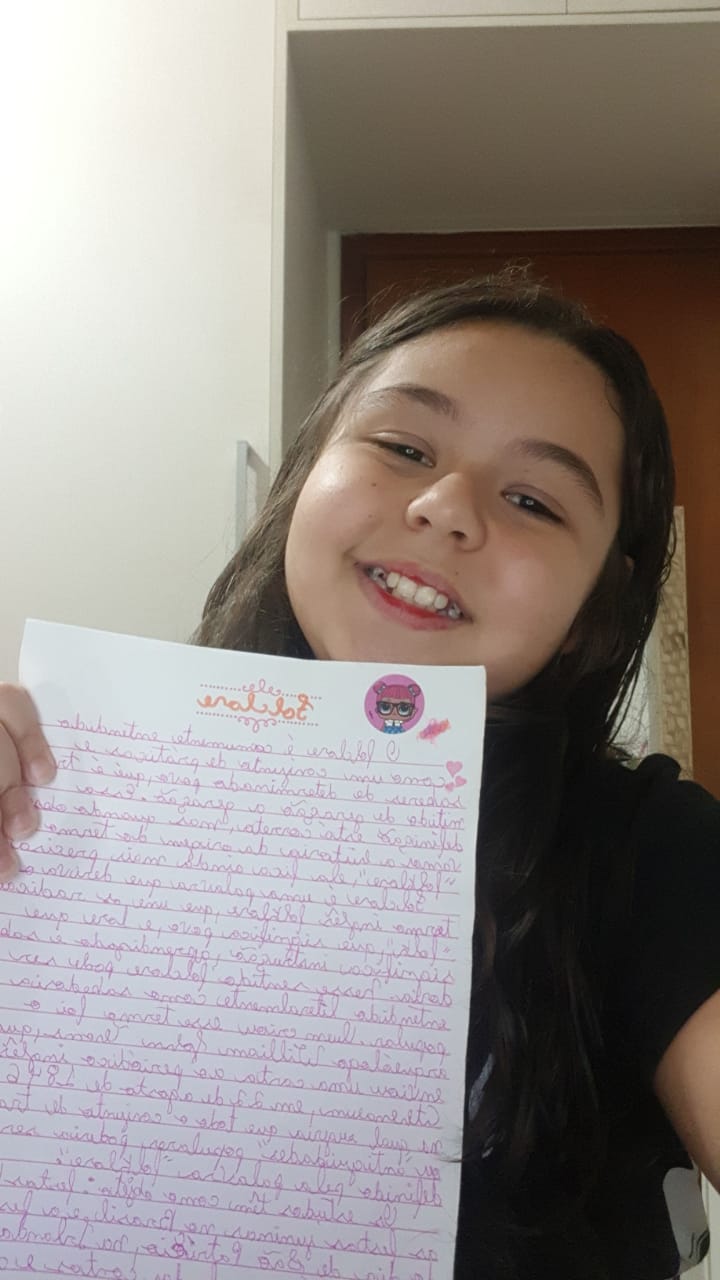 Folclore
O folclore é comumente entendido
como um conjunto de práticas e
saberes de determinado povo, que é tr
mitido de geração a geração. Essa
definição está correta, mas quando obs
vamos a história da origem do termo
"folklore", ela fica ainda mais precisa
Folclore é uma palavra que deriva do
termo inglês folklore, que une os radicais
"folk", que significa povo, e lore que
significa instrução, aprendizado e sabe
doria. Nesse sentido, folclore pode ser
entendido literalmente como sabedoria
popular. Quem criou esse termo foi o
arqueólogo William John Thoms, que
enviou uma carta ao periódico inglês
em 22 de agosto de 1846
na qual sugeria que todo o conjunto de tra
ou "antiguidades" populares, poderia ser
definido pela palavra "folklore".
estudos têm como objeto:
as festas juninas no Brasil, e o
dia de São Patrício, na Irlanda